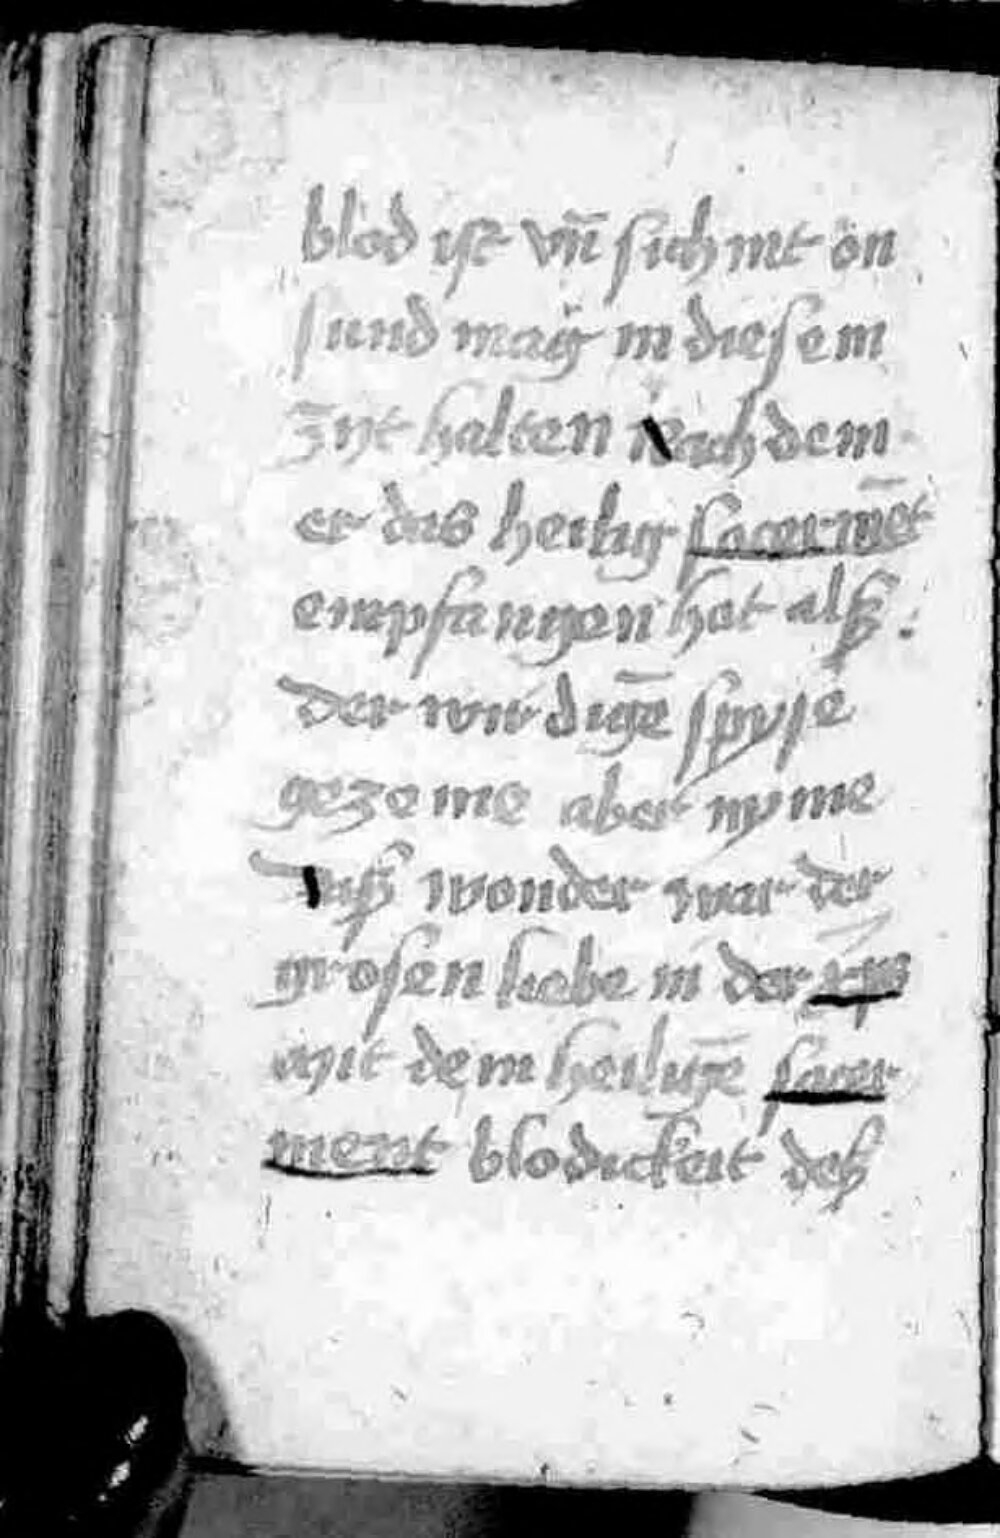 blod ist vn̄ sich nit ön
sund mag in diesem
zyt halten Nach dem
er das heilig sacermēt
empfangen hat alß
der wirdigē spyse
gezeme aber nyme
Daß wonder war der
grosen liebe in der
mit dem heiligē sacer
ment blodickeit deß